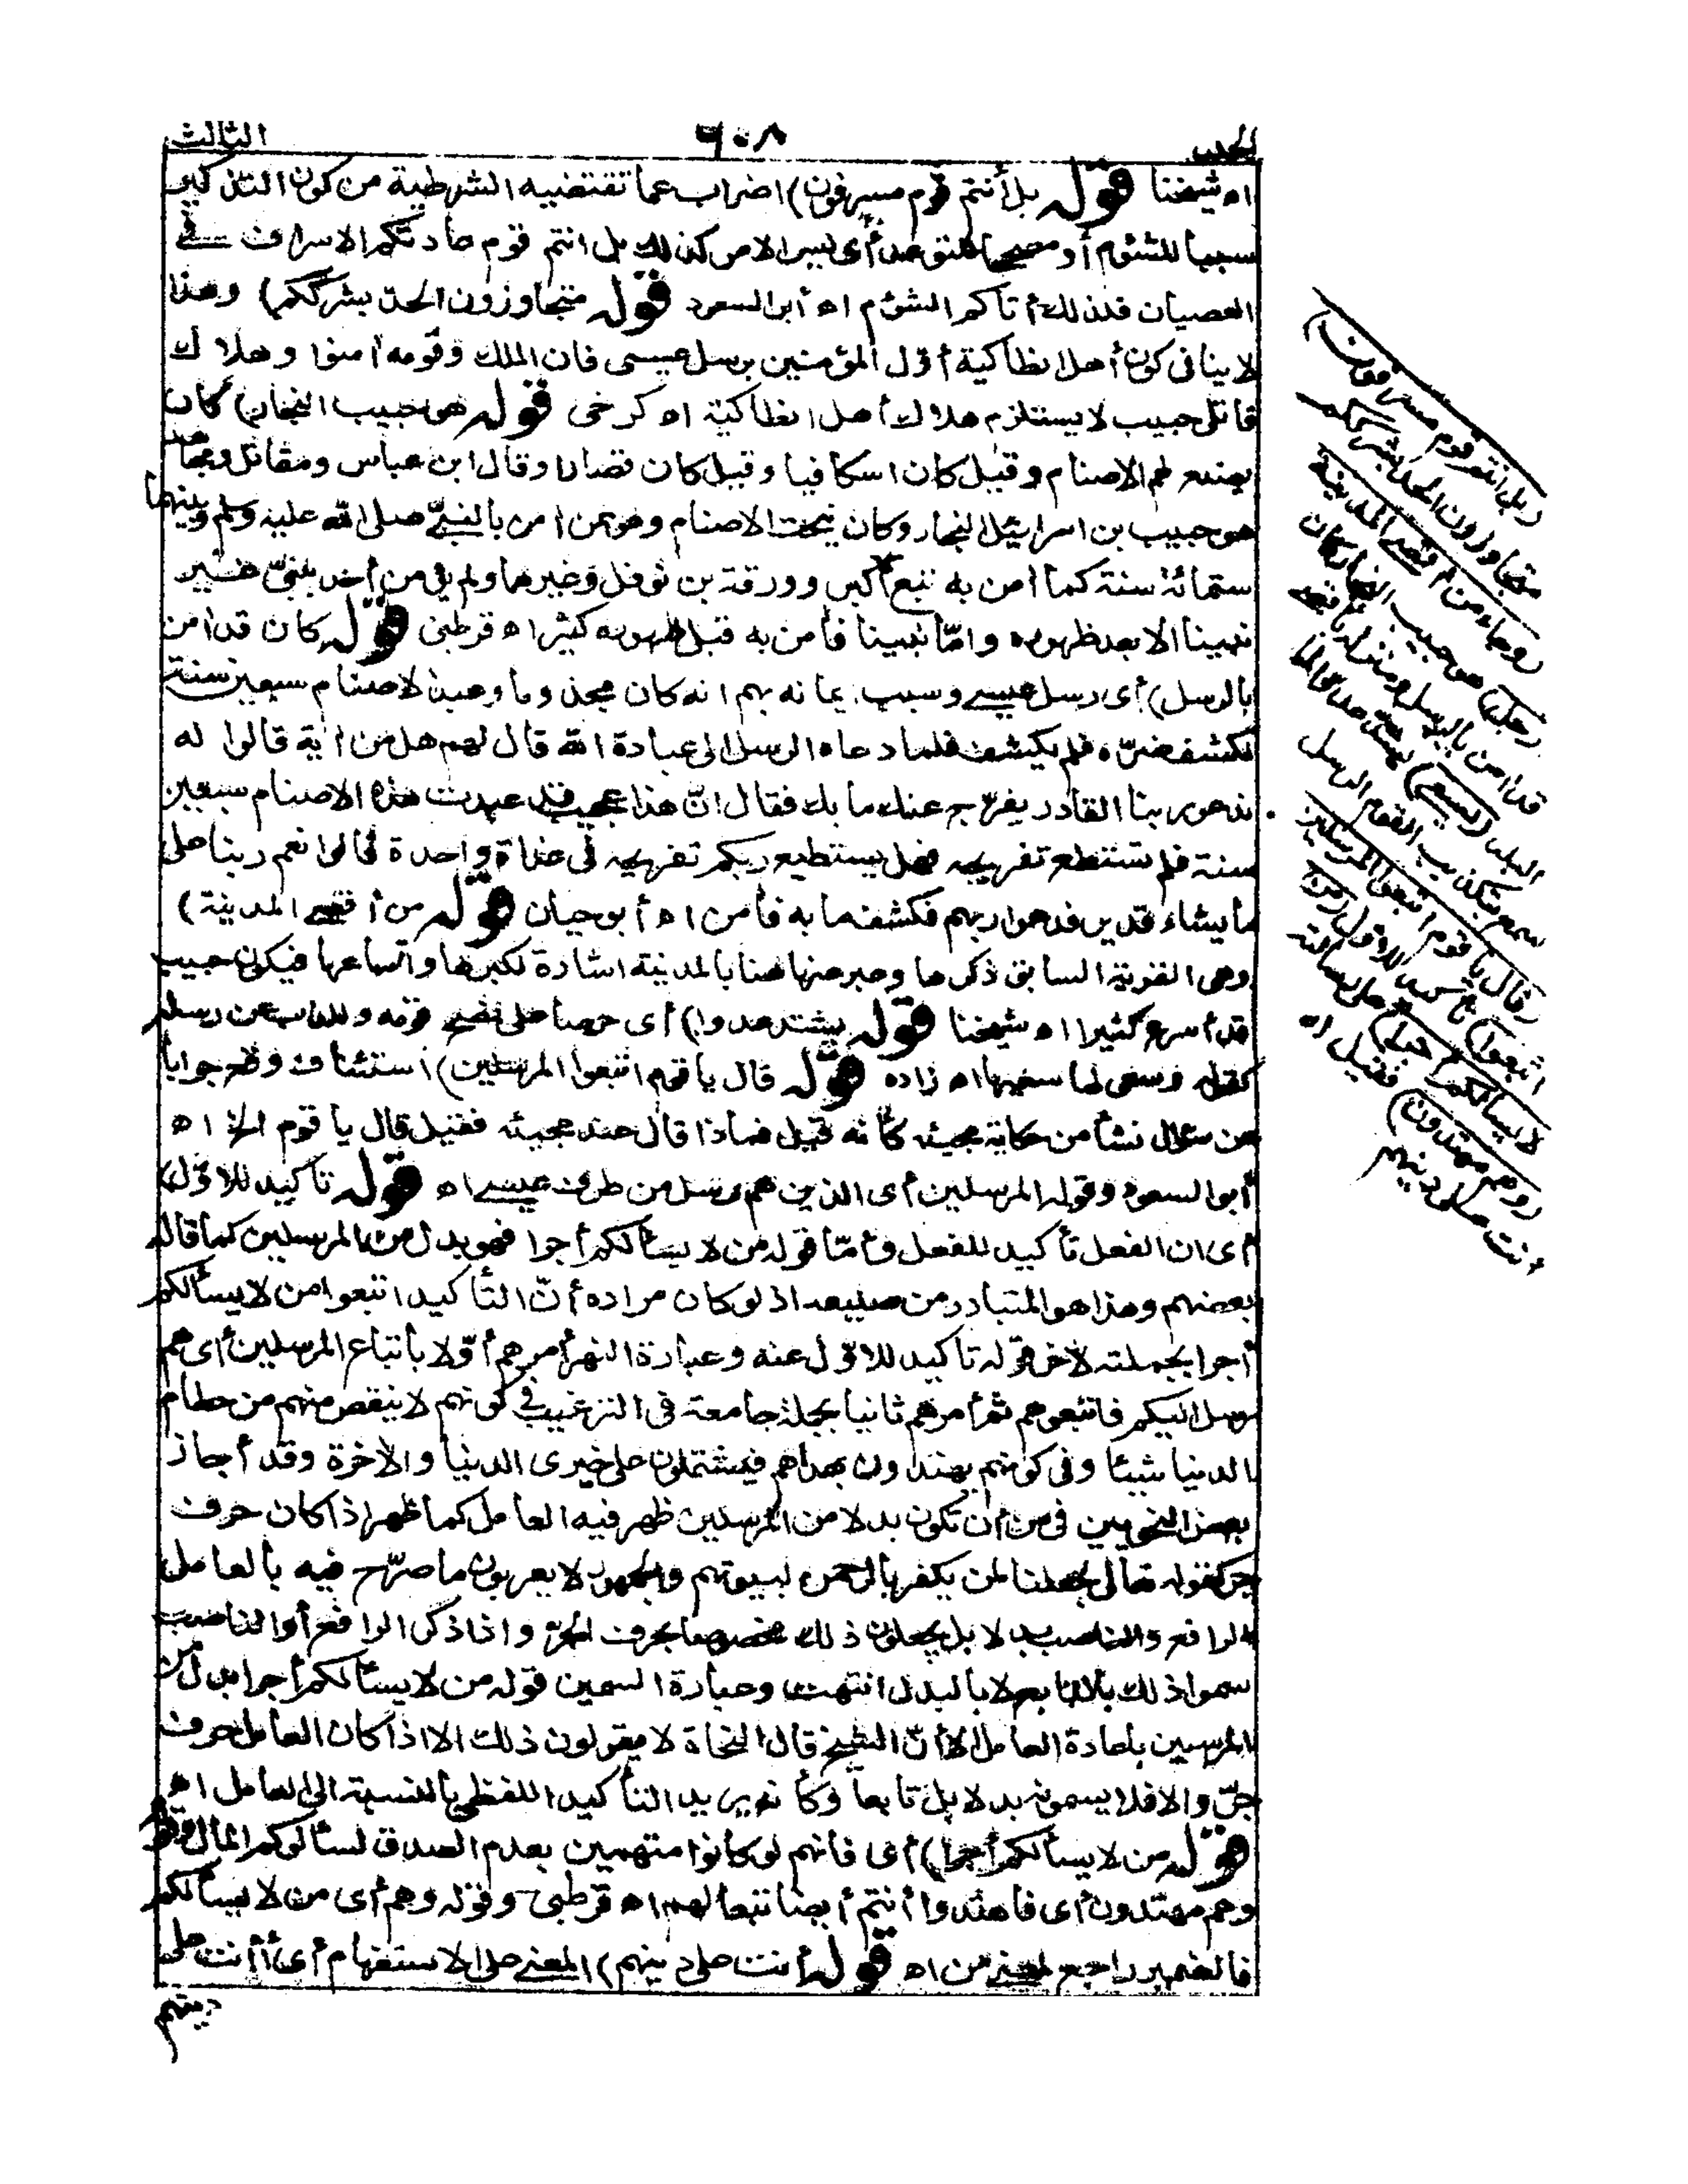 الجزء ٦٠٨ الثالث
اه شيخنا قوله بل أنتم قوم مسرفون) اضراب عما تقتضيه الشرطية من كون التذكير
سببا للشئوم أو مصححا للتوعد أى ليس الامر كذلك بل انتم قوم عادتكم الاسراف فى
العصيان فلذلك أتاكم الشؤم اه أبو السعود قوله متجاوزون الحد بشرككم) وهذا
لا ينافى كون أهل انطاكية أوّل المؤمنين برسل عيسى فان الملك وقومه آمنوا وهلاك
قاتلى حبيب لا يستلزم هلاك أهل انطاكية اه كرخى قوله هو حبيب النجار) كان
يصنع لهم الاصنام وقيل كان اسكافيا وقيل كان قصارا وقال ابن عباس ومقاتل ومجاهد
هو حبيب بن اسرائيل النجار وكان ينحت الاصنام وهو ممن امن بالنبىّ صلى الله عليه وسلم وبينهما
ستمائة سنة كما امن به تبع الاكبر وورقة بن نوفل وغيرهما ولم يؤمن أحد بنبىّ غير
نبينا الا بعد ظهوره وامّا نبينا فآمن به قبل ظهوره كثير اه قرطبى قوله كان قد امن
بالرسل) أى رسل عيسى وسبب ايمانه بهم انه كان مجذوما وعبد الاصنام سبعين سنة
لكشف ضرّه فلم يكشف فلما دعاه الرسل الى عبادة الله قال لهم هل من اية قالوا له
ندعو ربنا القادر يفرّج عنك ما بك فقال انّ هذا عجيب قد عبدت هذه الاصنام سبعين
سنة فلم تستطع تفريجه فهل يستطيع ربكم تفريجه فى غداة واحدة قالوا نعم ربنا على
ما يشاء قدير فدعوا ربهم فكشف ما به فآمن اه أبو حيان قوله من أقصى المدينة)
وهى القرية السابق ذكرها وعبر عنها هنا بالمدينة اشارة لكبرها واتساعها فيكون حبيب
قد أسرع كثيرا اه شيخنا قوله يشتد عدوا) أى حرصا على نصح قومه والذب عن رسلهم
كقوله وسعى لها سعيها اه زاده قوله قال يا قوم اتبعوا المرسلين) استئناف وقع جوابا
عن سؤال نشأ من حكاية مجيئه كأنه قيل فماذا قال عند مجيئه فقيل قال يا قوم الخ اه
أبو السعود وقوله المرسلين أى الذين هم رسل من طرف عيسى اه قوله تأكيد للاوّل)
أى ان الفعل تأكيد للفعل وأمّا قوله من لا يسألكم أجرا فهو بدل من المرسلين كما قاله
بعضهم وهذا هو المتبادر من صنيعه اذ لو كان مراده أنّ التأكيد اتبعوا من لا يسألكم
أجرا بجملته لأخر قوله تأكيد للاوّل عنه وعبارة النهر أمرهم أوّلا باتباع المرسلين أى هم
رسل اليكم فاتبعوهم ثم أمرهم ثانيا بجملة جامعة فى الترغيب فى كونهم لا ينقص منهم من حطام
الدنيا شيئا وفى كونهم يهتدون بهداهم فيشتملون على خيرى الدنيا والآخرة وقد أجاز
بعض النحويين فى من أن تكون بدلا من المرسلين ظهر فيه العامل كما ظهر اذا كان حرف
جرّ كقوله تعالى لجعلنا لمن يكفر بالرحمن لبيوتهم والجمهور لا يعربون ما صرّح فيه بالعامل
الرافع والناصب بدلا بل يجعلون ذلك مخصوصا بحرف الجرّ واذا ذكر الرافع أو الناصب
سموا ذلك بالتابع لا بالبدل انتهت وعبارة السمين قوله من لا يسألكم أجرا بدل من
المرسلين باعادة العامل الا أنّ الشيخ قال النحاة لا يقولون ذلك الا اذا كان العامل حرف
جرّ والا فلا يسمونه بدلا بل تابعا وكأنه يريد التأكيد اللفظى بالنسبة الى العامل اه
قوله من لا يسألكم أجرا) أى فانهم لو كانوا متهمين بعدم الصدق لسألوكم المال وقوله
وهم مهتدون أى فاهتدوا أنتم أيضا تبعا لهم اه قرطبى وقوله وهم أى من لا يسألكم
فالضمير راجع لمعنى من اه قوله أنت على دينهم) المعنى على الاستفهام أى أأنت على
دينهم
(بل انتم قوم مسرفون)
متجاوزون الحد بشرككم
(وجاء من أقصى المدينة
رجل) هو حبيب النجار كان
قد امن بالرسل ومنزله بأقصى
البلد (يسعى) يشتد عدوا لما
سمع بتكذيب القوم الرسل
(قال يا قوم اتبعوا المرسلين
اتبعوا) تأكيد للاوّل (من
لا يسألكم أجرا) على رسالته
(وهم مهتدون) فقيل له
أنت على دينهم